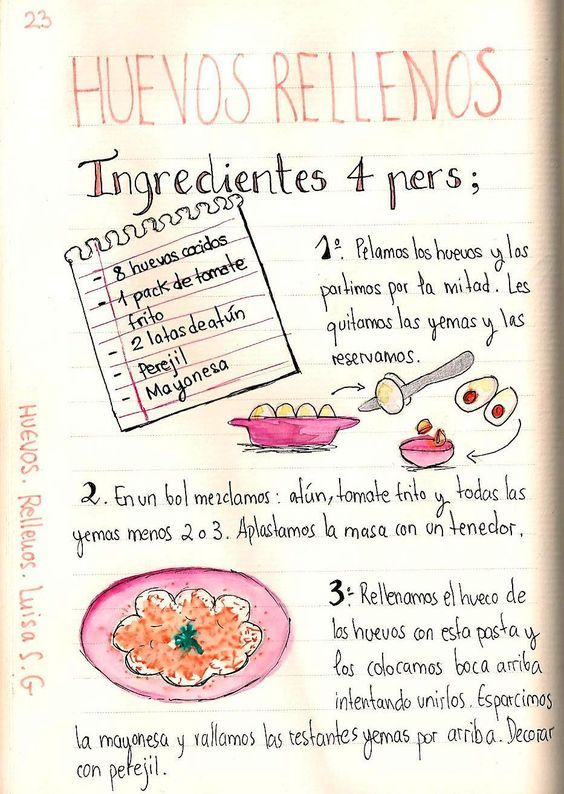 23
HUEVOS RELLENOS
Ingredientes 4 pers;
- 8 huevos cocidos
- 1 pack de tomate
frito
- 2 latas de atún
- Perejil
- Mayonesa
1º. Pelamos los huevos y los
partimos por la mitad. Les
quitamos las yemas y las
reservamos.
2. En un bol mezclamos: atún, tomate frito y todas las
yemas menos 2 o 3. Aplastamos la masa con un tenedor.
3: Rellenamos el hueco de
los huevos con esta pasta y
los colocamos boca arriba
intentando unirlos. Esparcimos
la mayonesa y rallamos las restantes yemas por arriba. Decorar
con perejil.
HUEVOS. Rellenos. Luisa S.G